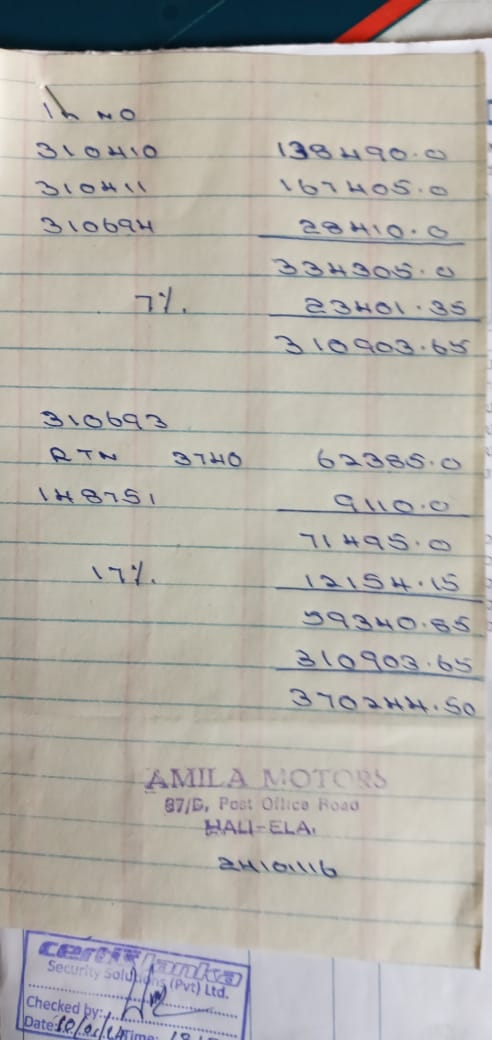 In NO
310410 138490.0
310411 167405.0
310694 28410.0
334305.0
7%. 23401.35
310903.65
310693
RTN 3740 62385.0
148751 9110.0
71495.0
17%. 12154.15
59340.85
310903.65
370244.50
AMILA MOTORS
87/B, Post Office Road
HALI-ELA.
24101116
certis lanka
Security Solutions (Pvt) Ltd.
Checked by:
Date: Time: